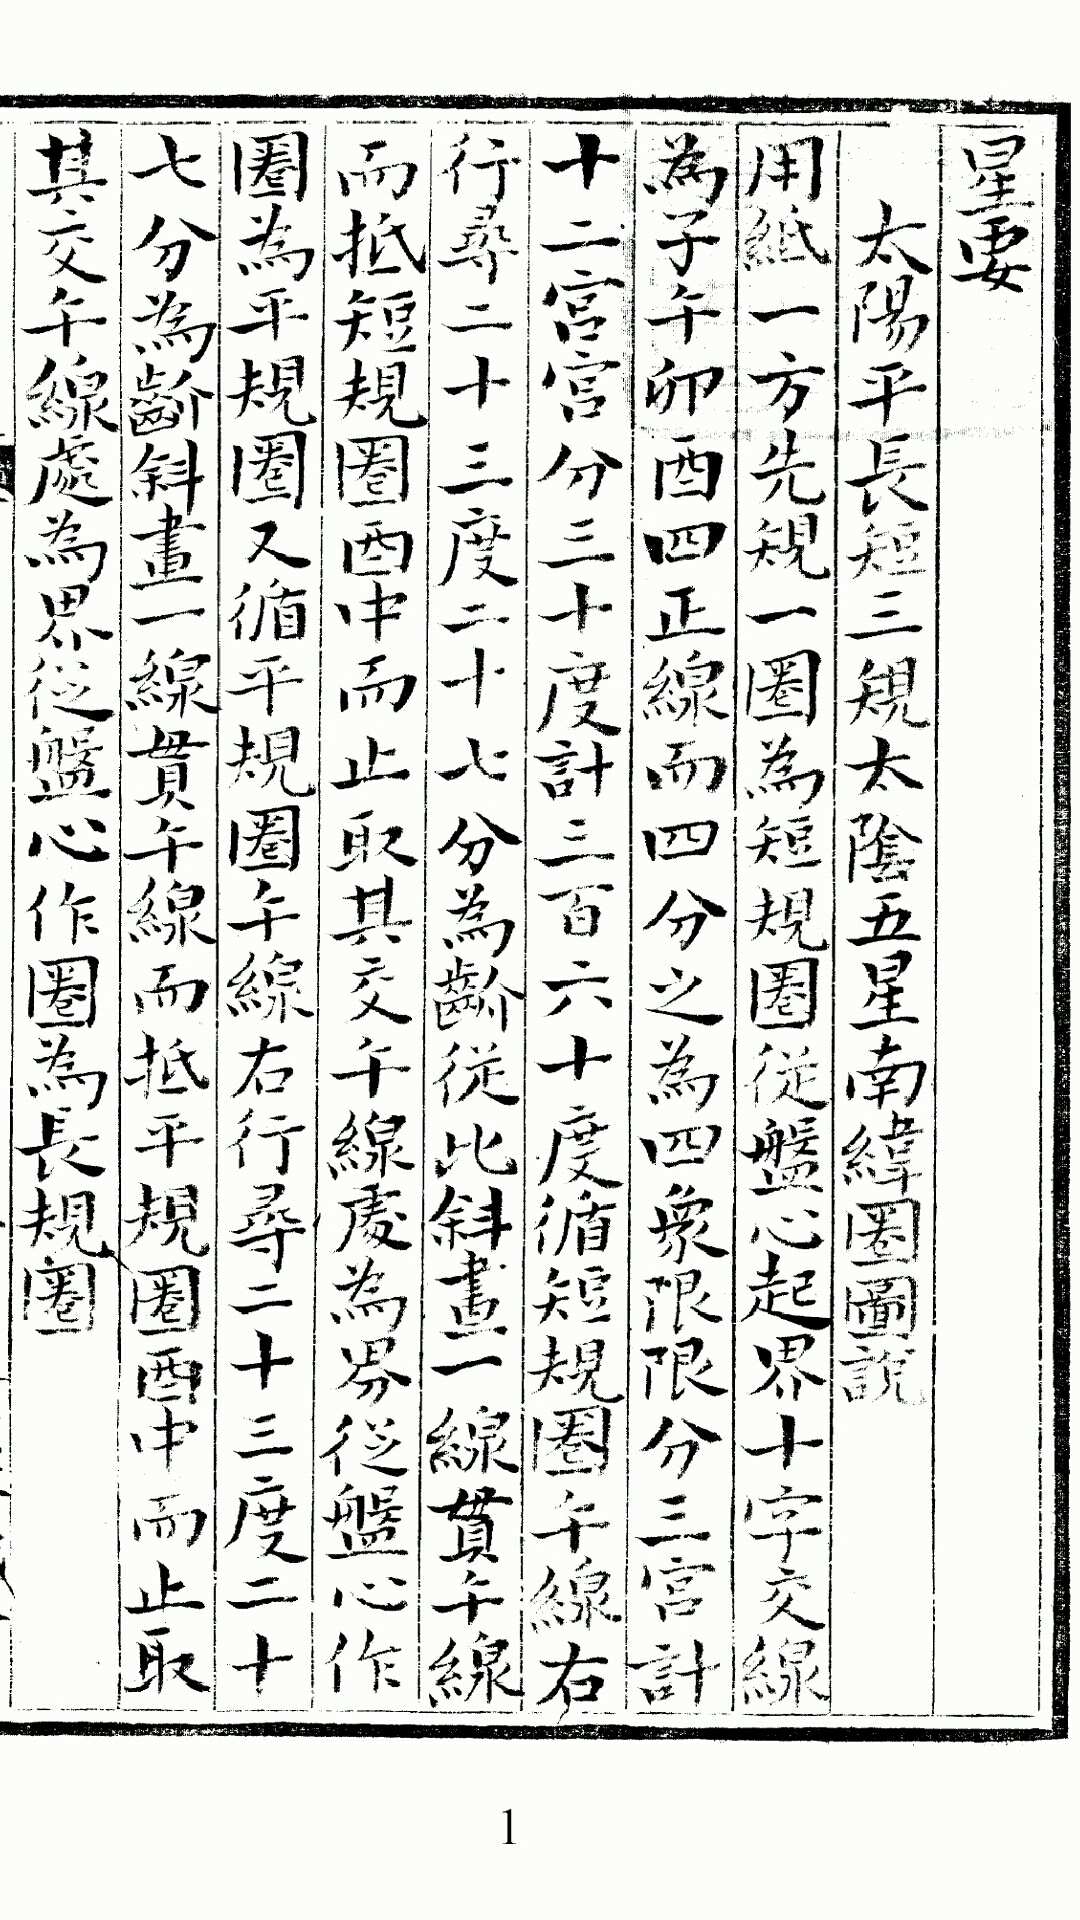 星要
太陽平長短三規太陰五星南緯圈圖說
用紙一方先規一圈為短規圈從盤心起界十字交線
為子午卯酉四正線而四分之為四象限限分三宮計
十二宮宮分三十度計三百六十度循短規圈午線右
行尋二十三度二十七分為齘從比斜畫一線貫午線
而抵短規圈酉中而止取其交午線處為界從盤心作
圈為平規圈又循平規圈午線右行尋二十三度二十
七分為齘斜畫一線貫午線而抵平規圈酉中而止取
其交午線處為界從盤心作圈為長規圈
1